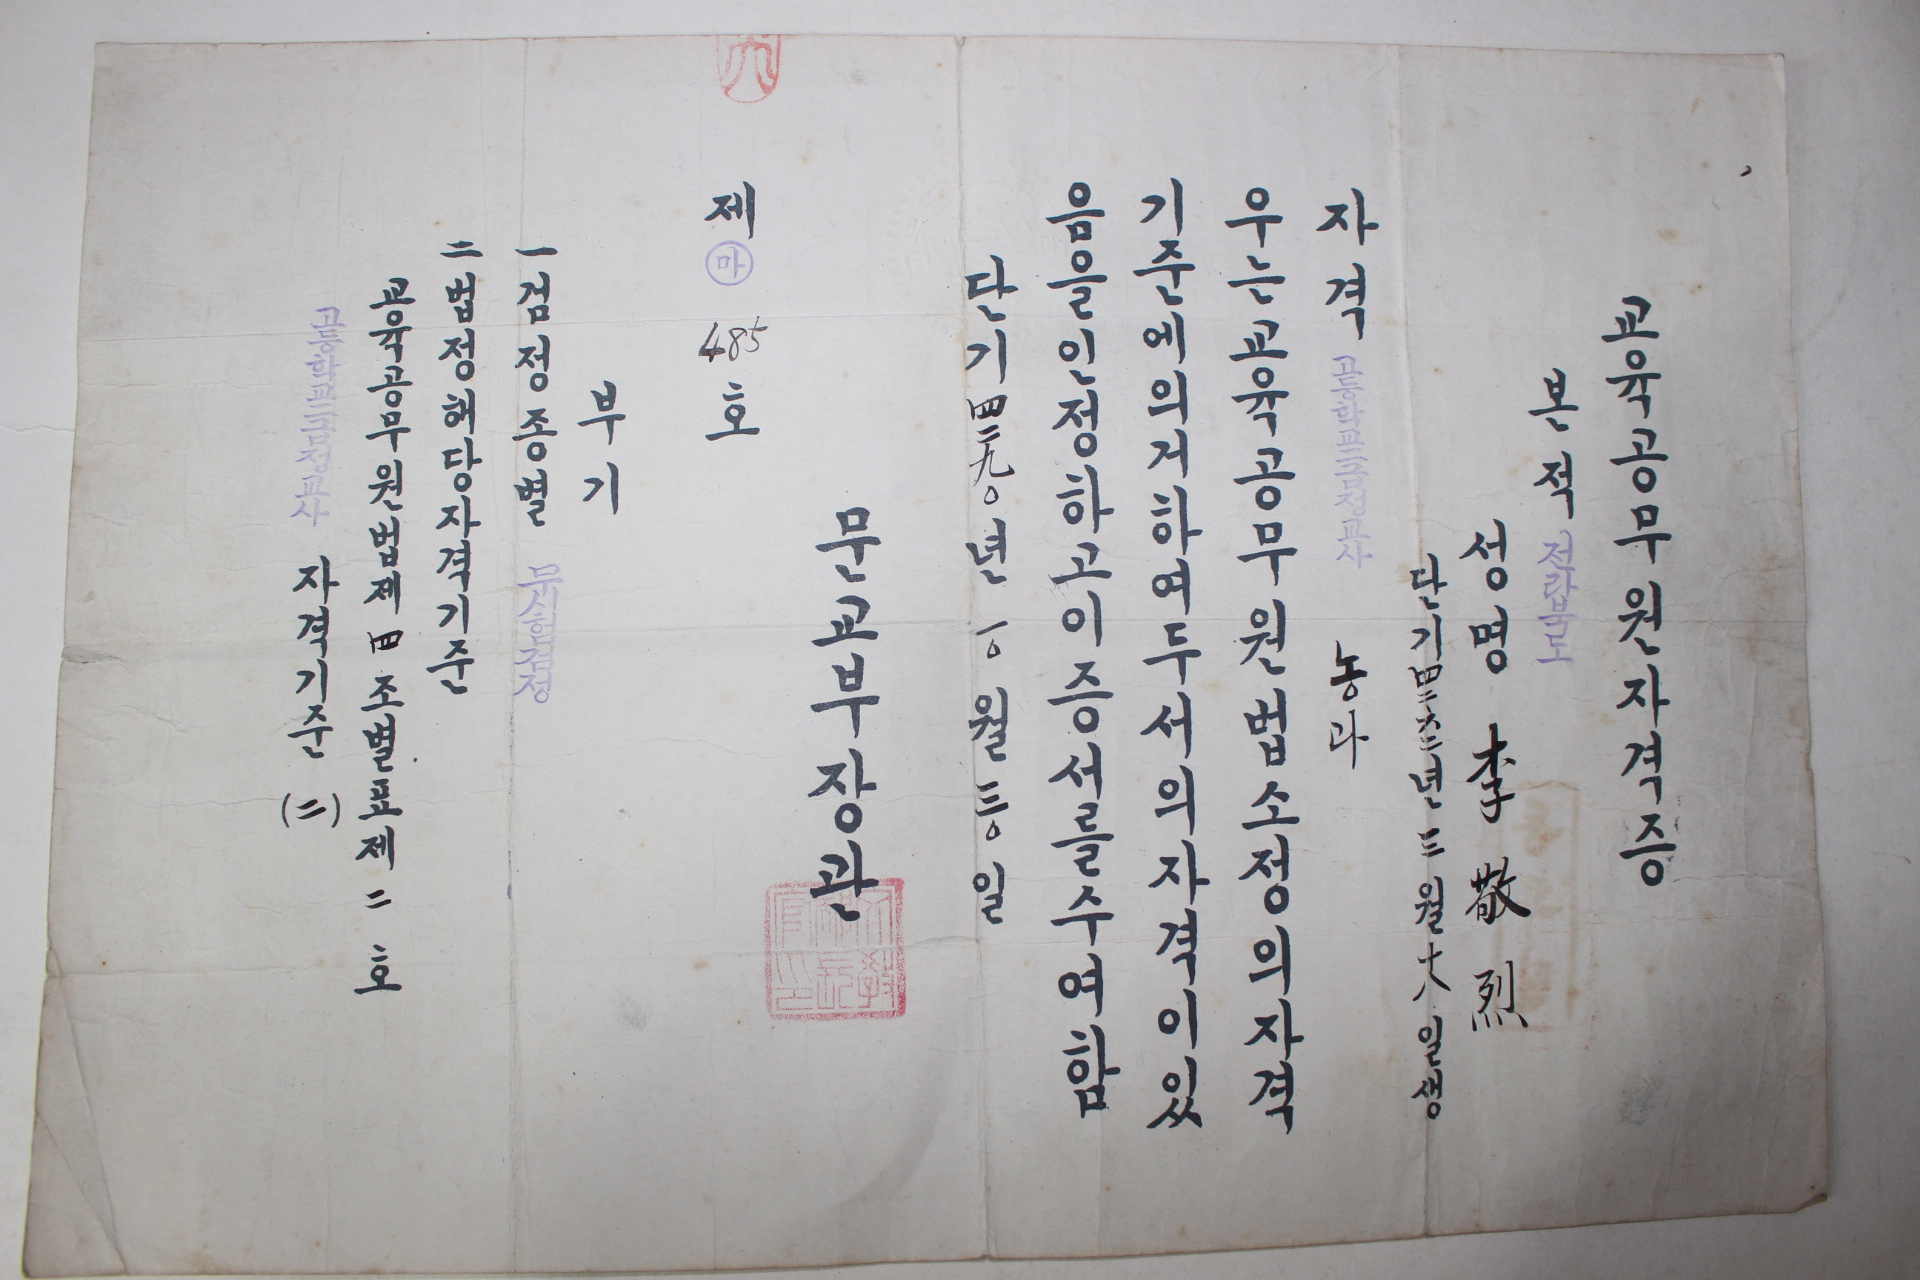 교육공무원자격증
본적 전라북도
성명 李敬烈
단기四二六二년 三월十八일생
자격 고등학교二급정교사 농과
우는교육공무원법소정의자격
기준에의거하여두서의자격이있
음을인정하고이증서를수여함
단기四二九〇년一〇월三〇일
문교부장관
제㉲485호
부기
一 검정종별 무시험검정
二 법정해당자격기준
교육공무원법제四조별표제二호
고등학교二급정교사 자격기준(二)